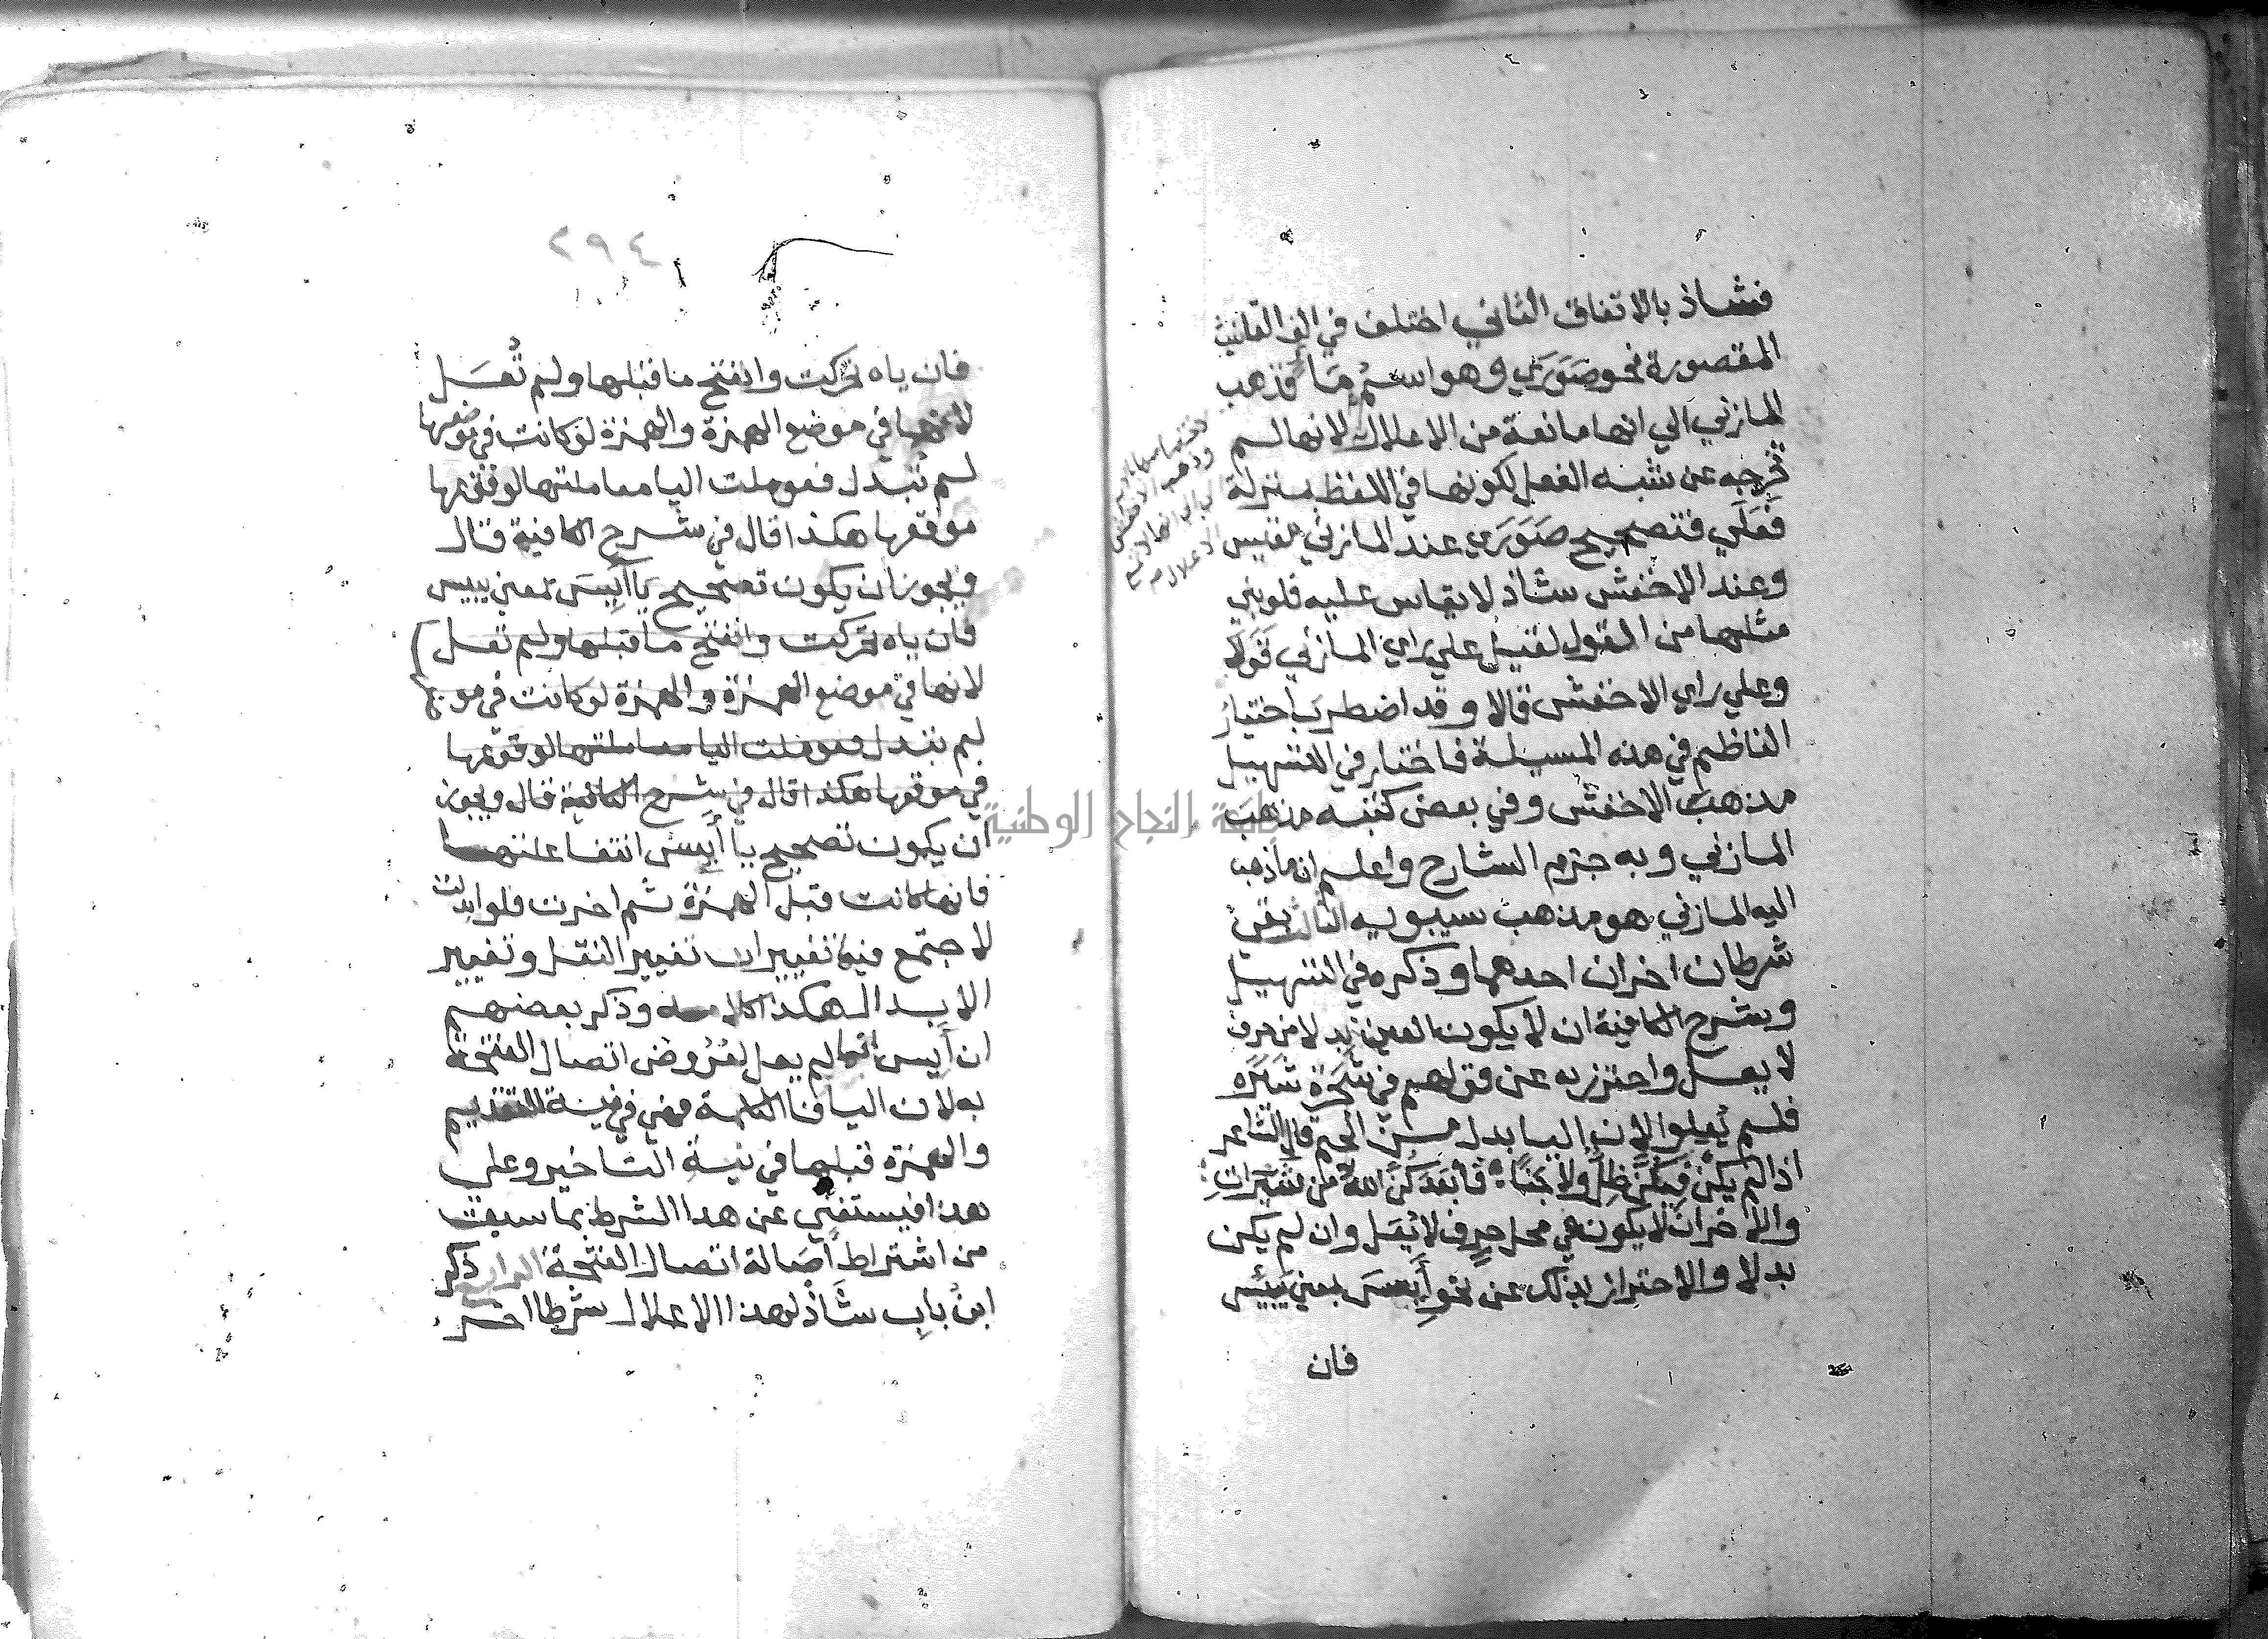 فشاذ بالاتفاق الثاني اختلف في الف التانيث
المقصورة نحو صَوَرَي وهو اسم ماٍ فذهب
المازني الي انها مانعة من الاعلال لانها لم
تخرجه عن شبه الفعل لكونها في اللفظ بمنزلة
فَعَلَي فتصحيح صَوَرَي عند المازني مقيس
وعند الاخفش شاذ لا يقاس عليه فلو بني
مثلها من القول لقيل علي راي المازني قَوَلَي
وعلي راي الاخفش قالا وقد اضطرب اختيار
الناظم في هذه المسيلة فاختار في التسهيل
مذهب الاخفش وفي بعض كتبه مذهب
المازني وبه جزم الشارح واعلم ان ما ذهب
اليه المازني هو مذهب سيبويه الثالث بقي
شرطان اخران احدهما وذكره في التسهيل
وشرح الكافية ان لا يكون العين بدلا من حرف
لا يعل واحترز به عن قولهم في شَجَرَةٍ شَيَرَه
فلم يُعِلوا لان اليا بدل من الجيم قال الشاعر
اذا لم يكن فيكنّ ظلٌّ ولا جَنًا فابعَدَكنَّ اللهُ من شَيَرَاتِ
والاخر ان لا يكون في محل حرف لا يُعَل وان لم يكن
بدلا والاحتراز بذلك عن نحو أَيِسَ بمعني يَئِسَ
فان
وذهب الاخفش
الاعلال
٢٩٤
فان ياه تحركت وانفتح ما قبلها ولم تُعَل
لانها في موضع الهمزة والهمزة لو كانت في موضعها
لم تُبدل فعوملت اليا معاملتها لوقوعها
موقعها هكذا قال في شرح الكافية قال
ويجوز ان يكون تصحيح يا أَيِسَ بمعني ييس
فان ياه تحركت وانفتح ما قبلها ولم تعل
لانها في موضع الهمزة والهمزة لو كانت في موضعها
لم تبدل فعوملت اليا معاملتها لوقوعها
في موقعها هكذا قال في شرح الكافية قال ويجوز
ان يكون تصحيح يا أَيِسَ انتفا علتها
فانها كانت قبل الهمزة ثم اخرت فلو ابدلت
لاجتمع فيها تغييران تغيير النقل وتغيير
الابدال هكذا كلامه وذكر بعضهم
ان أَيِس انما لم يعل لعُرُوض اتصال الفتحة
به لان اليا فا الكلمة فهي في نية التقديم
والهمزة قبلها في نيةِ التاخير وعلي
هذا فيستغني عن هذا الشرط بما سبق
من اشتراط أصَالة اتصال الفتحة الرابع ذكر
ابن باب شاذ لهذا الاعلال شرطا اخر
جامعة النجاح الوطنية